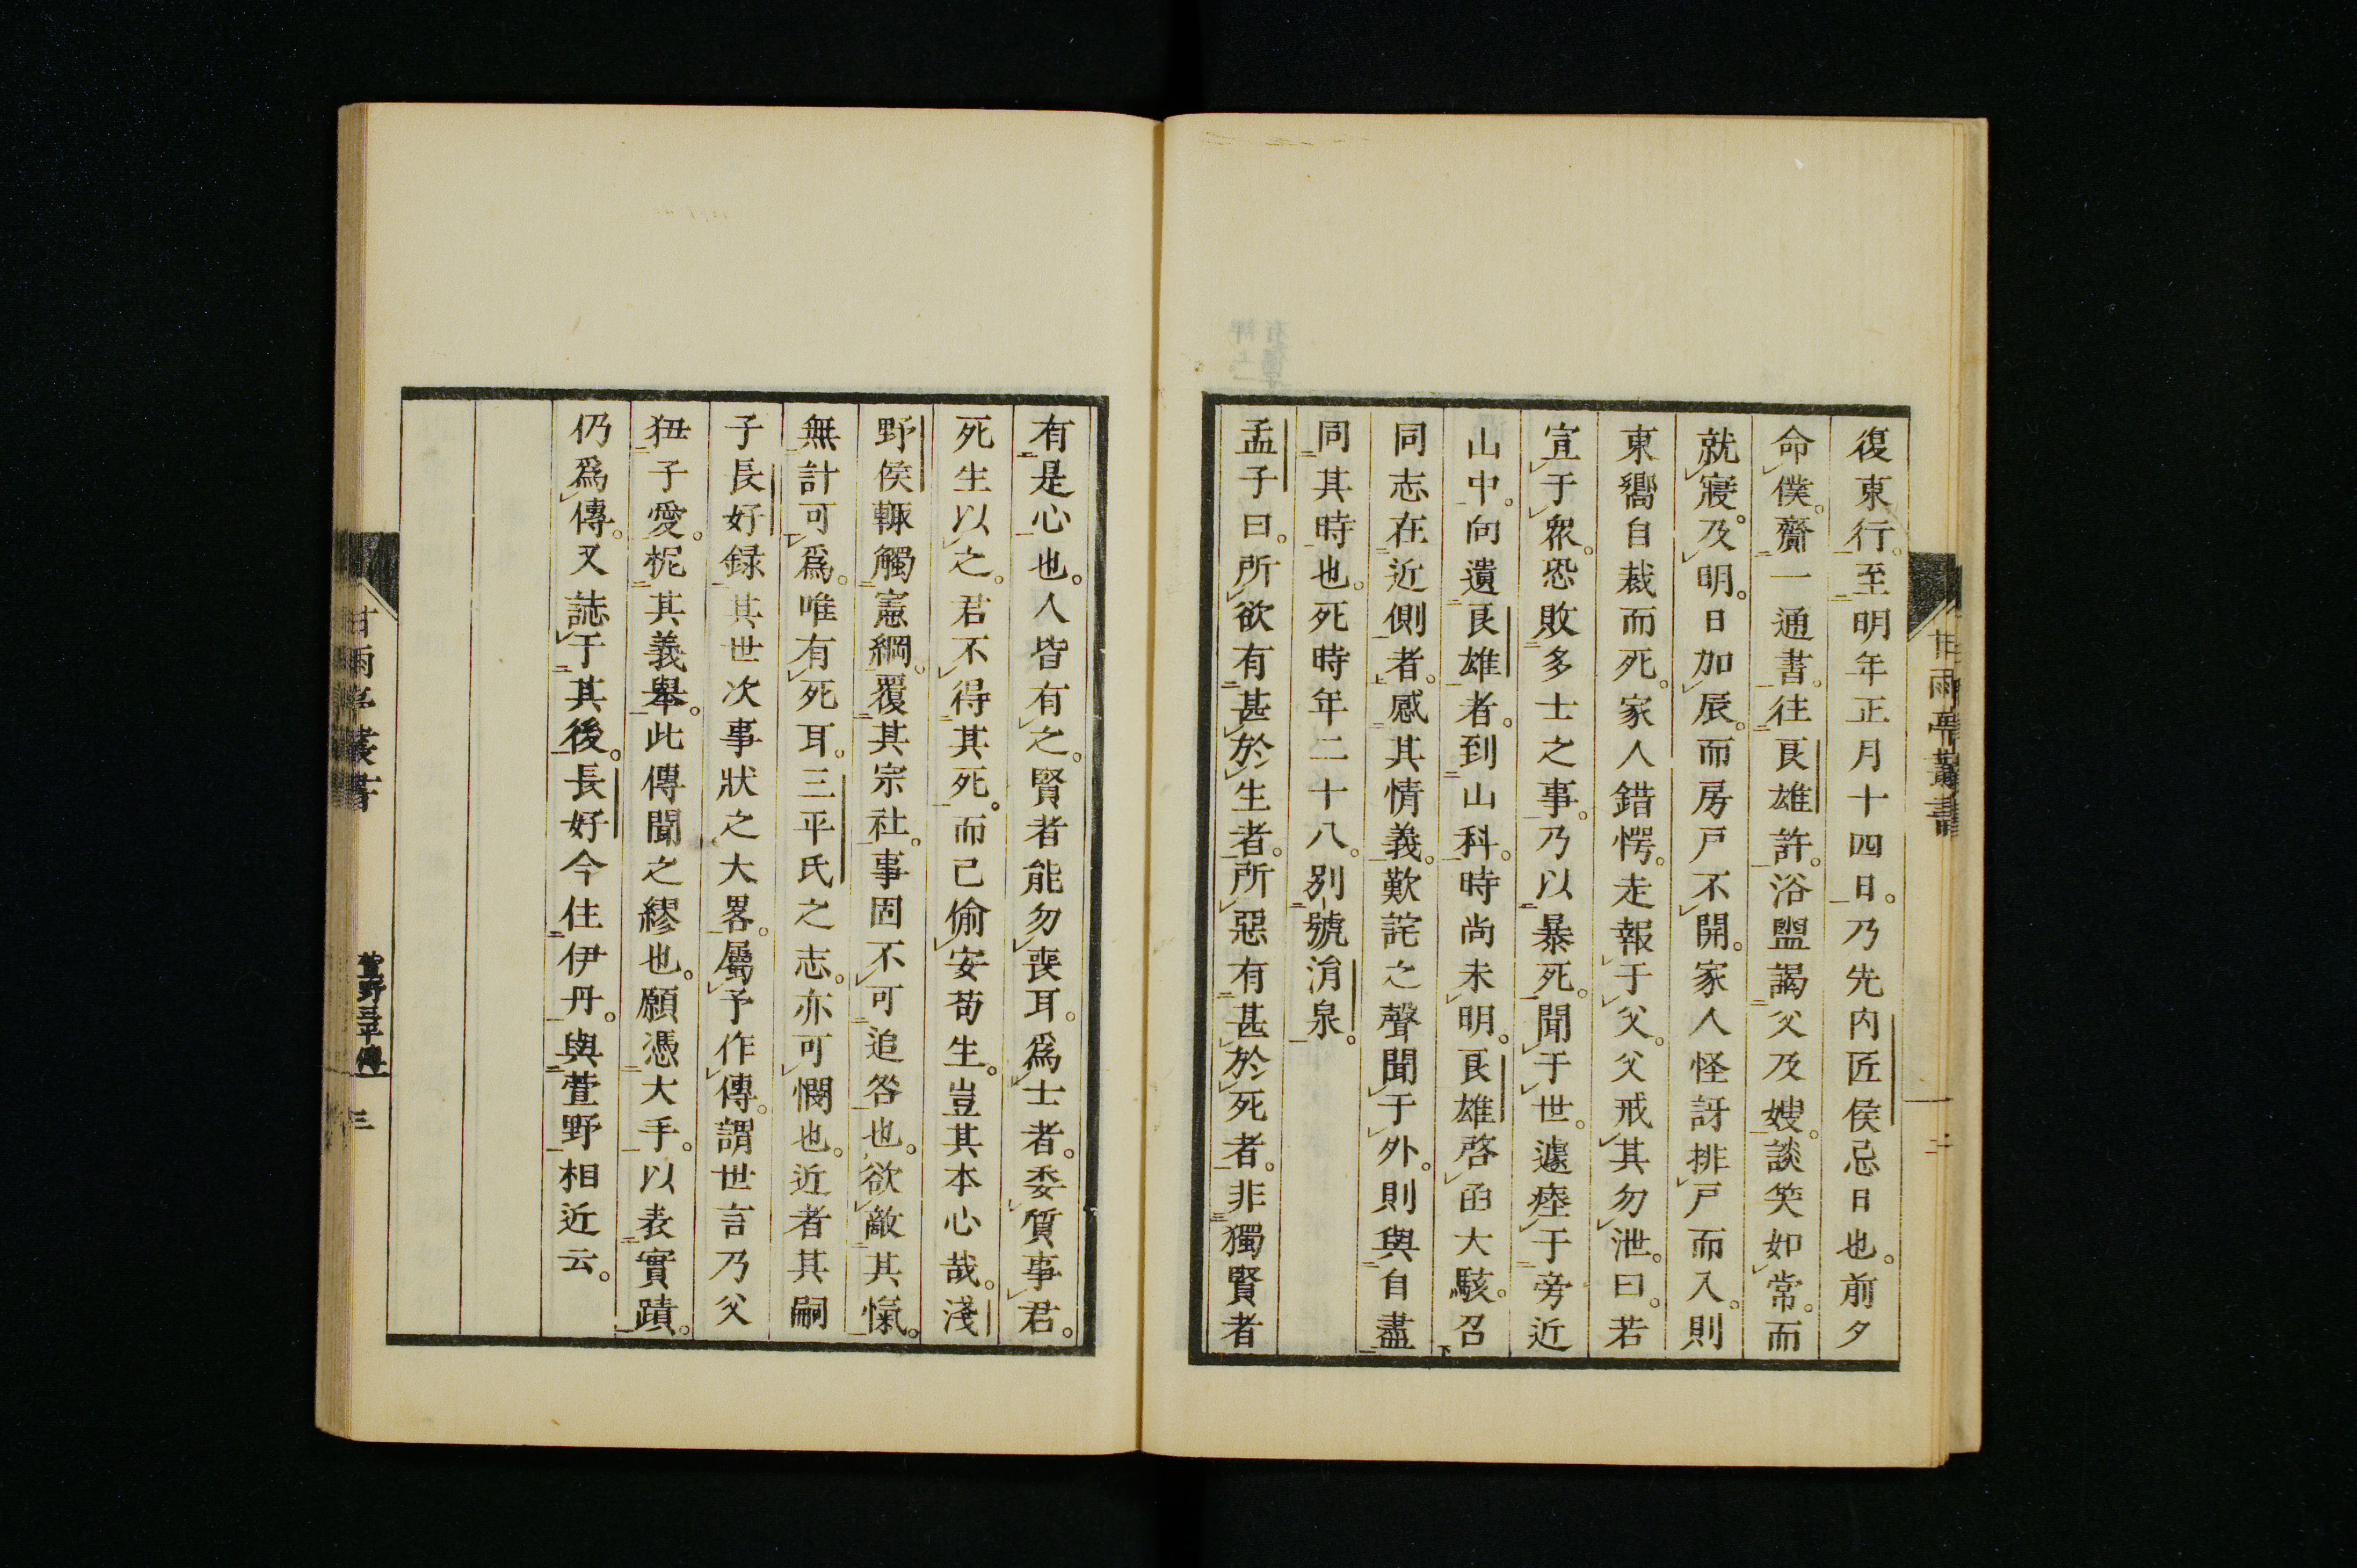 復東行。至明年正月十四日。乃先內匠侯忌日也。前夕
命僕。齎一通書。往良雄許。浴盥謁父及嫂。談笑如常。而
就寢。及明。日加辰。而房戶不開。家人怪訝排戶而入。則
東嚮自裁而死。家人錯愕。走報于父。父戒其勿泄。曰。若
宣于衆。恐敗多士之事。乃以暴死。聞于世。遽瘞于旁近
山中。向遺良雄者。到山科。時尚未明。良雄啓函大駭。召
同志在近側者。感其情義。歎詫之聲聞于外。則與自盡
同其時也。死時年二十八。別號涓泉。
孟子曰。所欲有甚於生者。所惡有甚於死者。非獨賢者
有是心也。人皆有之。賢者能勿喪耳。爲士者。委質事君。
死生以之。君不得其死。而己偷安苟生。豈其本心哉。淺
野侯輙觸憲綱。覆其宗社。事固不可追咎也。欲敵其愾。
無計可爲。唯有死耳。三平氏之志。亦可憫也。近者其嗣
子長好録其世次事狀之大畧。屬予作傳。謂世言乃父
狃子愛。柅其義舉。此傳聞之繆也。願憑大手。以表實蹟。
仍爲傳。又誌于其後。長好今住伊丹。與萱野相近云。
甘雨亭叢書
二
甘雨亭叢書
萱野三平傳
三